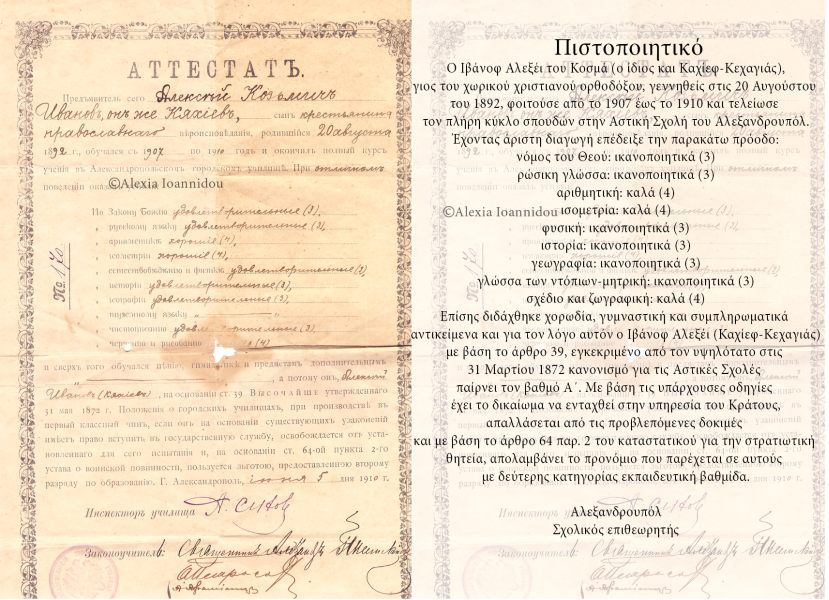 АТТЕСТАТЪ.
Предъявитель сего Алексѣй Козьмичъ
Ивановъ, онъ же Кяхіевъ, сынъ крестьянина
православнаго вѣроисповѣданія, родившійся 20 августа
1892 г., обучался съ 1907 по 1910 годъ и окончилъ полный курсъ
ученія въ Александропольскомъ городскомъ училищѣ. При отличномъ
поведеніи оказалъ
©Alexia Ioannidou
По Закону Божію удовлетворительные (3),
русскому языку удовлетворительные (3),
ариѳметикѣ хорошіе (4),
геометріи хорошіе (4),
естествовѣдѣнію и физикѣ удовлетворительные (3)
исторіи удовлетворительные (3),
географіи удовлетворительные (3),
языку
удовле рительные (3)
черченію и рисованію (4)
№ 170
и сверхъ того обученъ пѣнію, гимнастикѣ и предметамъ дополнительнымъ
а потому онъ, Алексѣй
Ивановъ (Кяхіевъ), на основаніи ст. 39. ВЫСОЧАЙШЕ утвержденнаго
31 мая 1872 г. Положенія о городскихъ училищахъ, при производствѣ въ
первый классный чинъ, если онъ на основаніи существующихъ узаконеній
имѣетъ право вступить въ государственную службу, освобождается отъ уста-
новленнаго для сего испытанія и, на основаніи ст. 64-ой пункта 2-го
устава о воинской повинности, пользуется льготою, предоставленною второму
разряду по образованію. Г. Александрополь, іюня 5 дня 1910 г.
Инспекторъ училища А. Ситов
Законоучитель: Священникъ
Πιστοποιητικό
Ο Ιβάνοφ Αλεξέι του Κοσμά (ο ίδιος και Καχίεφ-Κεχαγιάς),
γιος του χωρικού χριστιανού ορθοδόξου, γεννηθείς στις 20 Αυγούστου
του 1892, φοιτούσε από το 1907 έως το 1910 και τελείωσε
τον πλήρη κύκλο σπουδών στην Αστική Σχολή του Αλεξανδρουπόλ.
Έχοντας άριστη διαγωγή επέδειξε την παρακάτω πρόοδο:
νόμος του Θεού: ικανοποιητικά (3)
ρώσικη γλώσσα: ικανοποιητικά (3)
αριθμητική: καλά (4)
©Alexia Ioannidou
ισομετρία: καλά (4)
φυσική: ικανοποιητικά (3)
ιστορία: ικανοποιητικά (3)
γεωγραφία: ικανοποιητικά (3)
γλώσσα των ντόπιων-μητρική: ικανοποιητικά (3)
σχέδιο και ζωγραφική: καλά (4)
Επίσης διδάχθηκε χορωδία, γυμναστική και συμπληρωματικά
αντικείμενα και για τον λόγο αυτόν ο Ιβάνοφ Αλεξέι (Καχίεφ-Κεχαγιάς)
με βάση το άρθρο 39, εγκεκριμένο από τον υψηλότατο στις
31 Μαρτίου 1872 κανονισμό για τις Αστικές Σχολές
παίρνει τον βαθμό Α΄. Με βάση τις υπάρχουσες οδηγίες
έχει το δικαίωμα να ενταχθεί στην υπηρεσία του Κράτους,
απαλλάσεται από τις προβλεπόμενες δοκιμές
και με βάση το άρθρο 64 παρ. 2 του καταστατικού για την στρατιωτική
θητεία, απολαμβάνει το προνόμιο που παρέχεται σε αυτούς
με δεύτερης κατηγορίας εκπαιδευτική βαθμίδα.
Αλεξανδρουπόλ
Σχολικός επιθεωρητής